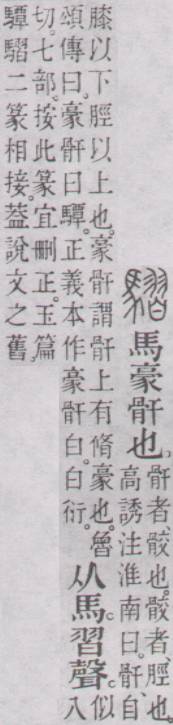 騽 馬豪骭也。骭者、骹也。骹者、脛也。
高誘注淮南曰。骭、自
膝以下脛以上也。豪骭謂骭上有脩豪也。魯
頌傳曰。豪骭曰驔。正義本作豪骭白。白衍。
从馬。習聲。似
入
切。七部。按此篆宜刪正。玉篇
驔騽二篆相接。葢說文之舊。